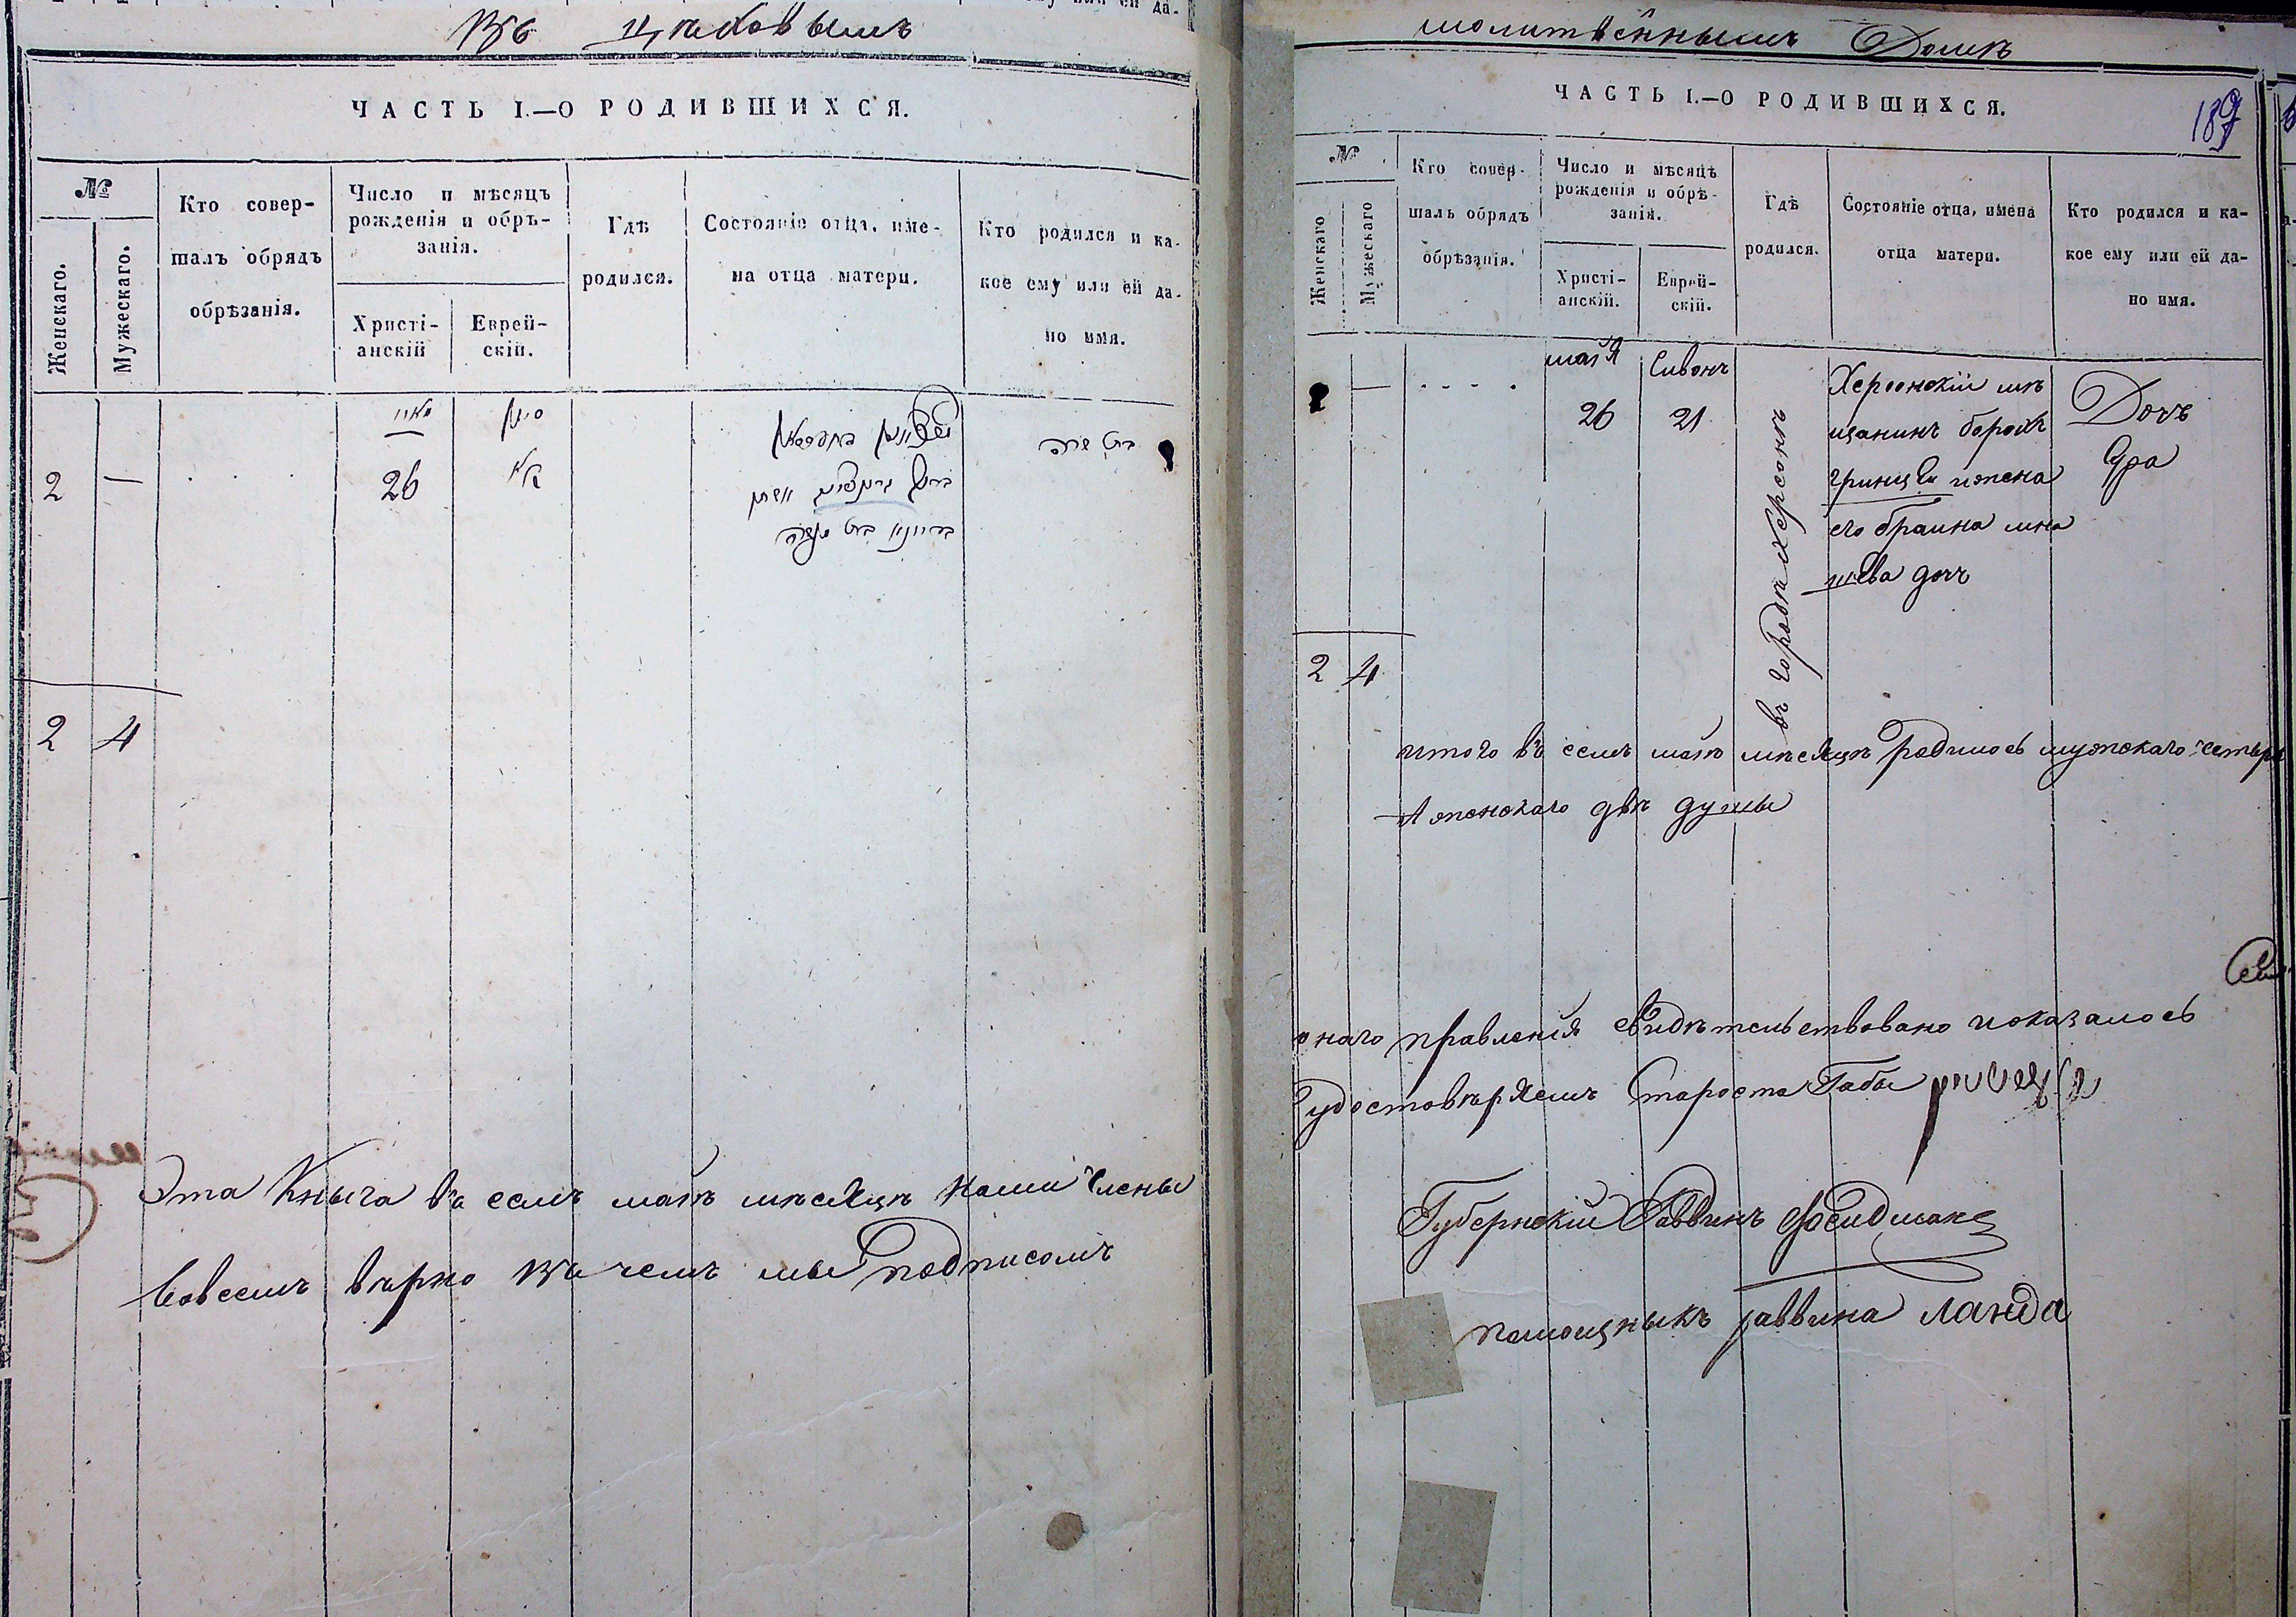 Въ Цеховымъ
ЧАСТЬ I.—О РОДИВШИХСЯ.
№
Женскаго.
Мужескаго.
Кто совер-
шалъ обрядъ
обрѣзанія.
Число и мѣсяцъ
рожденія и обрѣ-
занія.
Христі-
анскій
Еврей-
скій.
Гдѣ
родился.
Состояніе отца, име-
на отца матери.
Кто родился и ка-
кое ему или ей да-
но имя.
מאיי
סיון
2 — . . . 26 כא
בת שרה
2 4
Эта Кныга въ семъ маѣ мѣсяцѣ нами члены
совсемъ вѣрно въ чемъ мы Подписомъ
молитвеннымъ Домѣ
ЧАСТЬ I.—О РОДИВШИХСЯ.
189
№
Женскаго
Мужескаго
Кто совер-
шалъ обрядъ
обрѣзанія.
Число и мѣсяцъ
рожденія и обрѣ-
занія.
Христі-
анскій.
Еврей-
скій.
Гдѣ
родился.
Состояніе отца, имена
отца матери.
Кто родился и ка-
кое ему или ей да-
но имя.
2 — . . . .
мая
26
Сивонъ
21
въ городѣ Херсонѣ
Херсонскій мѣ
щанинъ борохъ
гринцви ижена
его браина мна
шева дочъ
Дочъ
Сура
2 4
итого въ семъ маѣ мѣсяцѣ родилось мужскаго четыре
А женскаго двѣ душы
онаго правленія свидѣтельствовано иоказалось
удостовѣряемъ Староста Габы
Губернскій Раввинъ
помощныкъ раввина Ланда